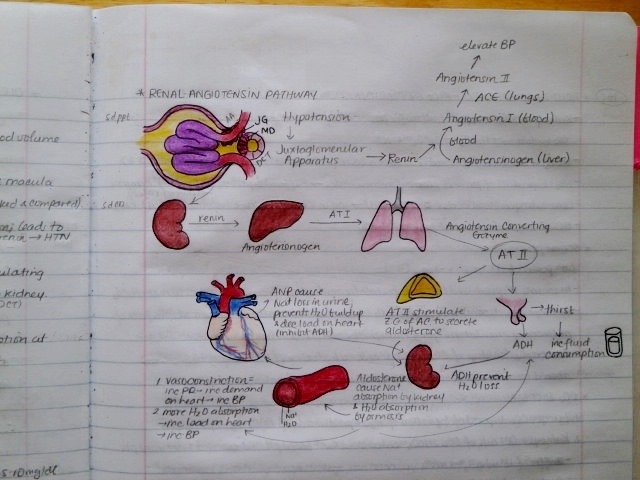 elevate BP
Angiotensin II
ACE (lungs)
* RENAL ANGIOTENSIN PATHWAY
sd ppt
AA
JG
MD
DCT
Hypotension
Angiotensin I (blood)
Juxtaglomerular
Apparatus
Renin
blood
Angiotensinogen (liver)
od volume
macula
& compared)
leads to
→ HTN
ulating
Kidney
ption at
renin
Angiotensinogen
ATI
Angiotensin Converting
Enzyme
AT II
ANP cause
Na+ loss in urine,
prevent H2O buildup
& dec load on heart
(inhibit ADH)
AT II stimulate
ZG of AC to secrete
aldosterone
thirst
ADH
inc fluid
consumption
1 vasoconstriction =
inc PR → inc demand
on heart → inc BP
2 more H2O absorption
→ inc load on heart
→ inc BP
Na+
H2O
Aldosterone
cause Na+
absorption by kidney
& H2O absorption
by osmosis
ADH prevent
H2O loss
mg/dl